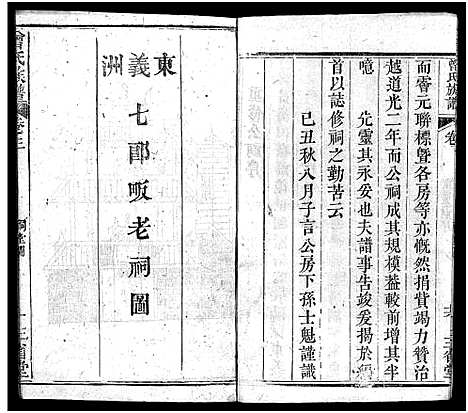 曾氏族譜 卷
而睿元聯標暨各房等亦慨然捐貲竭力贊治
越道光二年而公祠成其規模蓋較前增其半
噫　先靈其永妥也夫譜事告竣爰揚於
首以誌修祠之勤苦云
己丑秋八月子言公房下孫士魁謹識
三省堂
東義洲
七郎畈老祠圖
曾氏族譜 卷之二
祠堂圖
一
三省堂